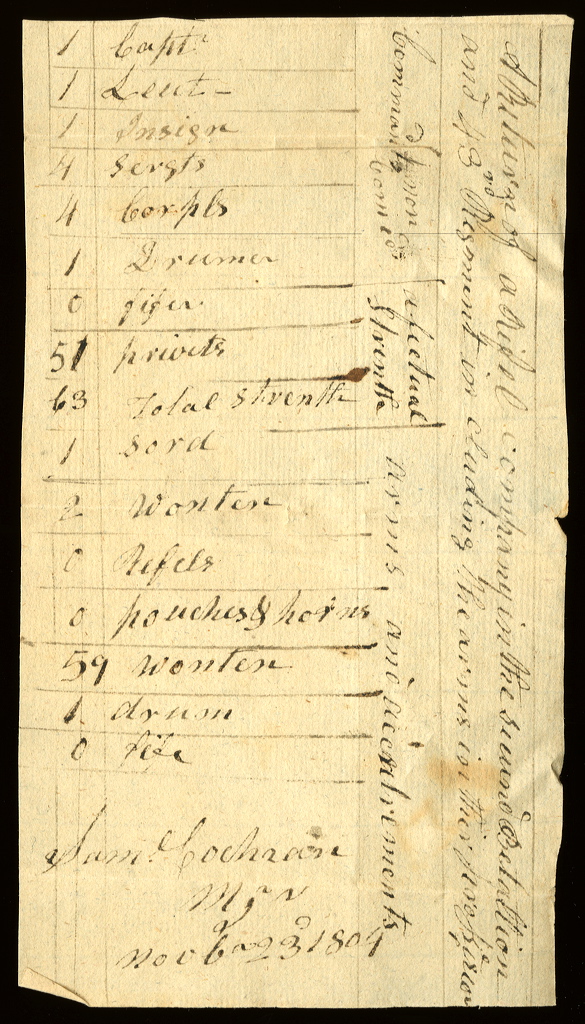 A Return of a Rifel company in the secund Batattion
and 43rd Regment in cluding the arms in thir
Commantd
non
Com
afectual
Strenth
Arms and Accalrements
1 Capt
1 Leut
1 Insign
4 Sergts
4 Corpls
1 Drumer
0 fifer
51 privets
63 Total Strenth
1 Sord
2 wonten
0 Refels
0 pouches & horns
59 wonten
1 drum
0 fife
Saml Cochran
Novbr 23d 1804